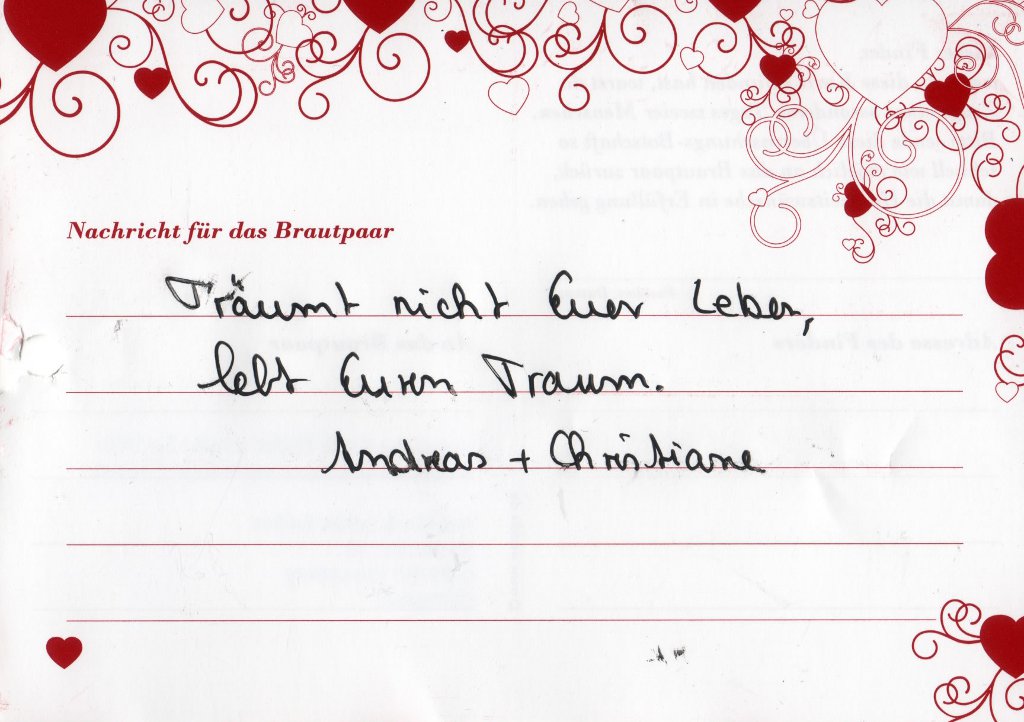 Nachricht für das Brautpaar
Träumt nicht Euer Leben,
lebt Euren Traum.
Andreas + Christiane